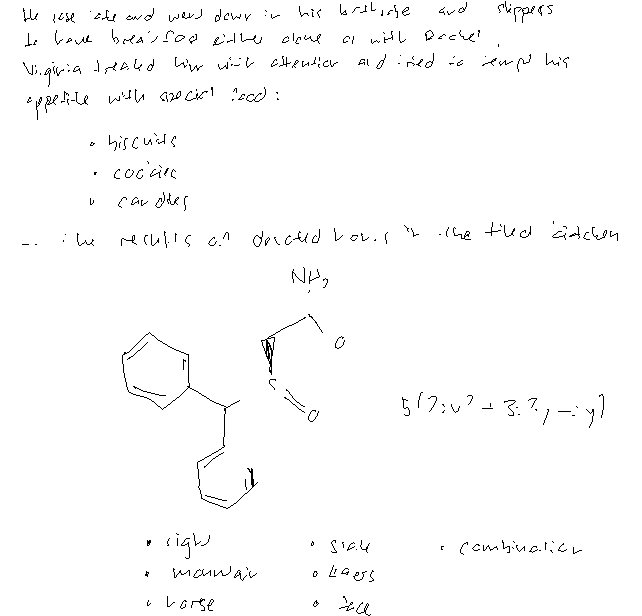 He rose late and went down in his bathrobe and slippers
to have breakfast either alone or with Rachel.
Virginia treated him with attention and tried to tempt his
appetite with special food:
• biscuits
• cookies
• candies
the results of devoted hours in the tiled kitchen
NH2
O
S
O
• right
• mountain
• horse
• side
• face
• combination